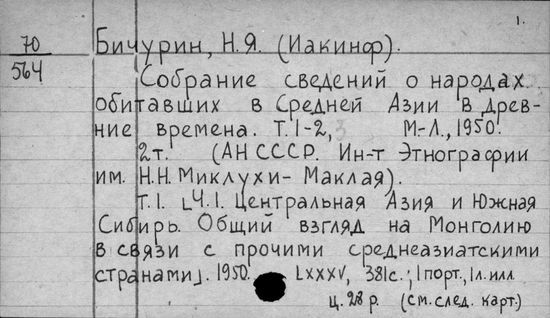 1.
70 Бичурин, Н.Я. (Иакинф).
564 Собрание сведений о народах
обитавших в Средней Азии в древ-
ние времена. Т. 1-2, 3 М-Л., 1950.
2т. (АН СССР. Ин-т Этнографии
им. Н.Н. Миклухи-Маклая).
Т.1. [Ч.1. Центральная Азия и Южная
Сибирь. Общий взгляд на Монголию
в связи с прочими среднеазиатскими
странами]. 1950. LXXXV, 381с.; 1 порт., 1л. илл
ц. 28 р. (см. след. карт.)